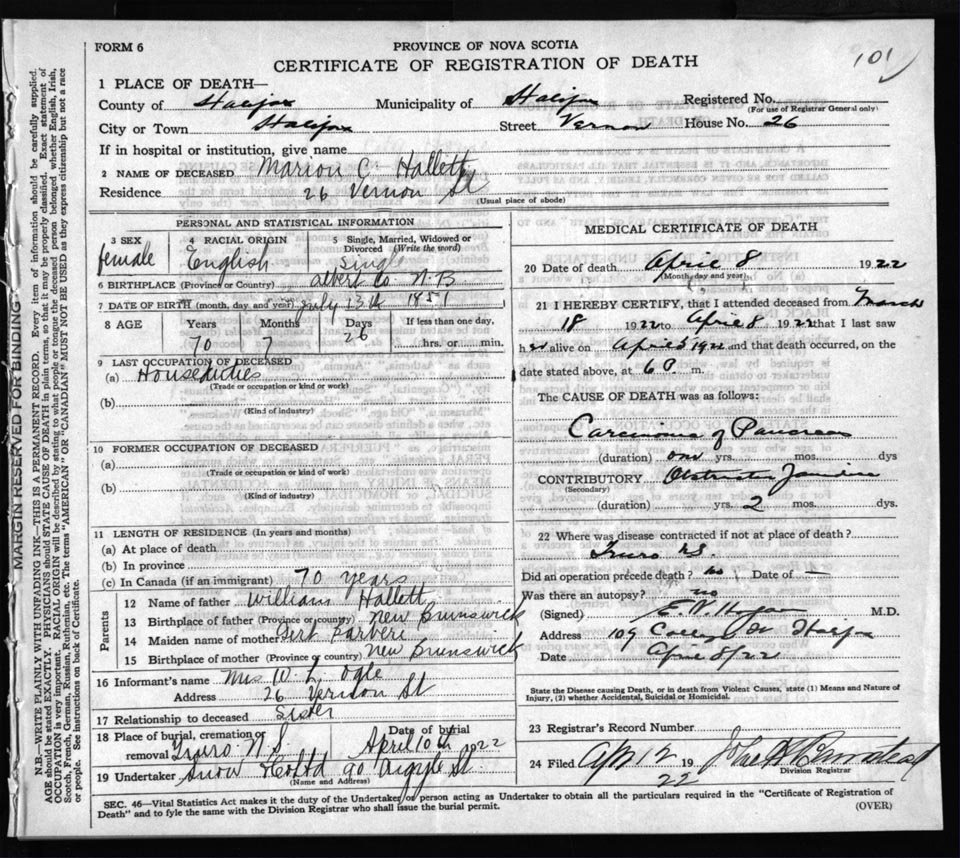 FORM 6
PROVINCE OF NOVA SCOTIA
CERTIFICATE OF REGISTRATION OF DEATH
101
1 PLACE OF DEATH—
County of Halifax Municipality of Halifax Registered No.
(For use of Registrar General only)
City or Town Halifax Street Vernon House No. 26
If in hospital or institution, give name
2 NAME OF DECEASED Marion C. Hallett
Residence 26 Vernon St
(Usual place of abode)
PERSONAL AND STATISTICAL INFORMATION
3 SEX
female
4 RACIAL ORIGIN
English
5 Single, Married, Widowed or Divorced (Write the word)
Single
6 BIRTHPLACE (Province or Country) Albert Co N.B
7 DATE OF BIRTH (month, day and year) July 13th 1851
8 AGE Years Months Days If less than one day,
70 7 26 hrs. or min.
9 LAST OCCUPATION OF DECEASED
(a) Houseduties
(Trade or occupation or kind of work)
(b)
(Kind of industry)
10 FORMER OCCUPATION OF DECEASED
(a)
(Trade or occupation or kind of work)
(b)
(Kind of industry)
11 LENGTH OF RESIDENCE (In years and months)
(a) At place of death
(b) In province
(c) In Canada (if an immigrant) 70 years
Parents
12 Name of father William Hallett
13 Birthplace of father (Province or country) New Brunswick
14 Maiden name of mother
15 Birthplace of mother (Province or country) New Brunswick
16 Informant's name Mrs W. L. Ogle
Address 26 Vernon St
17 Relationship to deceased Sister
18 Place of burial, cremation or removal Truro N.S.
Date of burial
April 10th 1922
19 Undertaker Snow & Co Ltd 90 Argyle St.
(Name and Address)
MEDICAL CERTIFICATE OF DEATH
20 Date of death April 8 1922
(Month, day and year)
21 I HEREBY CERTIFY, that I attended deceased from March
18 1922 to April 8 1922 that I last saw
her alive on April 5 1922 and that death occurred, on the
date stated above, at 6 P m.
The CAUSE OF DEATH was as follows:
Carcinoma of Pancreas
(duration) one yrs. mos. dys
CONTRIBUTORY
(Secondary)
(duration) yrs. 2 mos. dys.
22 Where was disease contracted if not at place of death?
Truro NS.
Did an operation precede death? no Date of —
Was there an autopsy? no
(Signed) M.D.
Address 109 College St Halifax
Date April 8/22
State the Disease causing Death, or in death from Violent Causes, state (1) Means and Nature of
Injury, (2) whether Accidental, Suicidal or Homicidal.
23 Registrar's Record Number
24 Filed Apr 12 1922
Division Registrar
SEC. 46—Vital Statistics Act makes it the duty of the Undertaker or person acting as Undertaker to obtain all the particulars required in the "Certificate of Registration of
Death" and to fyle the same with the Division Registrar who shall issue the burial permit.
(OVER)
MARGIN RESERVED FOR BINDING
N.B.—WRITE PLAINLY WITH UNFADING INK—THIS IS A PERMANENT RECORD. Every item of information should be carefully supplied.
AGE should be stated EXACTLY. PHYSICIANS should STATE CAUSE OF DEATH in plain terms, so that it may be properly classified. Exact statement of
OCCUPATION is very important. RACIAL ORIGIN will be described by stating to what people or tongue the deceased person belonged whether English, Irish,
Scotch, French, German, Russian, Ruthenian, etc. The terms "AMERICAN" or "CANADIAN" MUST NOT BE USED as they express citizenship but not a race
or people. See instructions on back of Certificate.